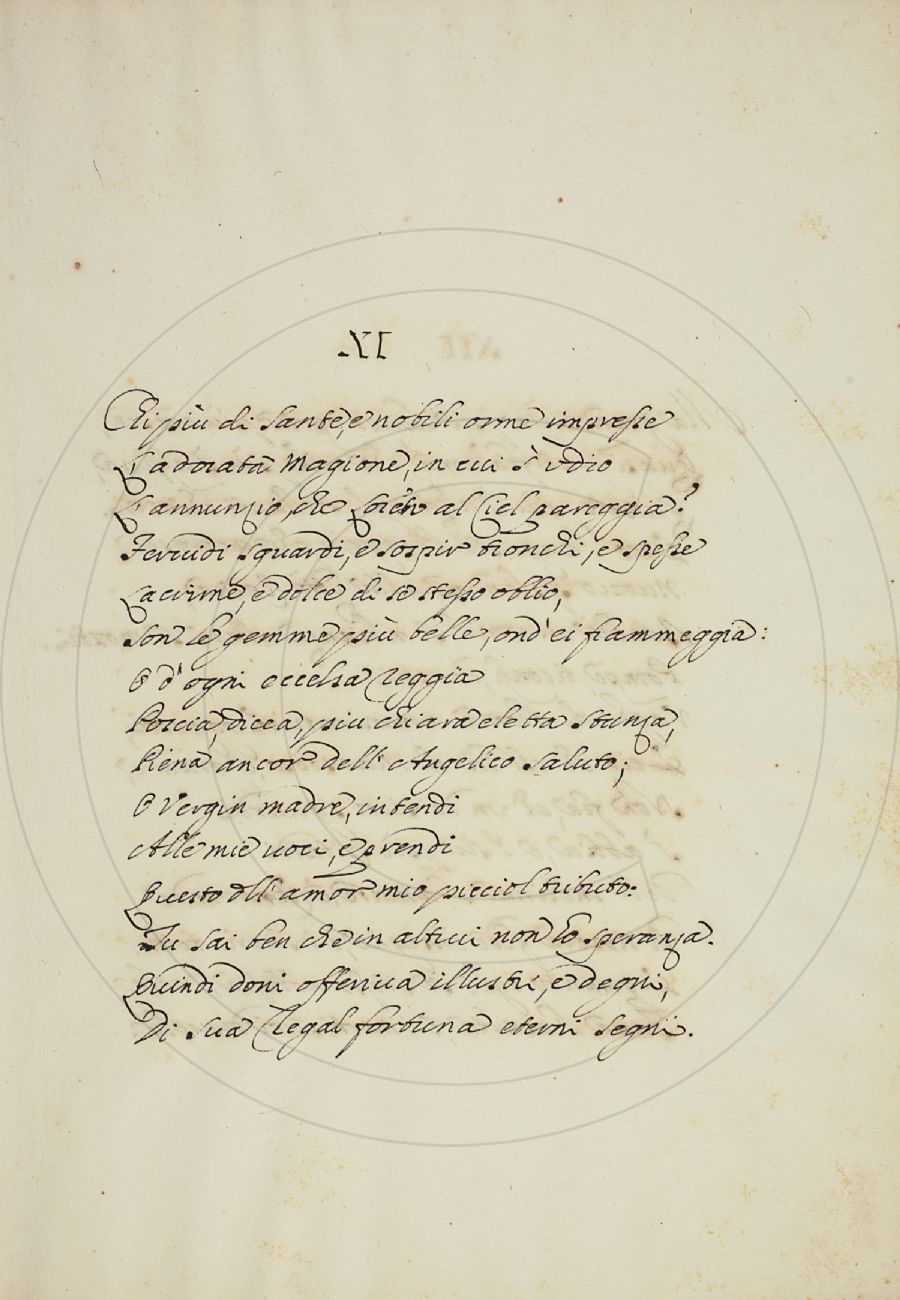 .XI
Chi più di sante, e nobili orme impresse
L'adorata Magione, in cui s'udio
L'annunzio, che Loreto al Ciel pareggia?
Feruidi sguardi, e sospir tronchi, e spesse
Lacrime, e dolce di se stesso oblio,
Son le gemme più belle, ond'ei fiammeggia:
O d'ogni eccelsa Reggia
Porcia, dicea, piu chiara eletta stanza,
Piena ancor dell'Angelico saluto;
O Vergin madre, intendi
Alle mie uoci, e prendi
Questo dell'amor mio picciol tributo:
Tu sai ben che in altrui non hò speranza.
Quindi doni offeriua illustri, e degni,
Di sua Regal fortuna eterni segni.